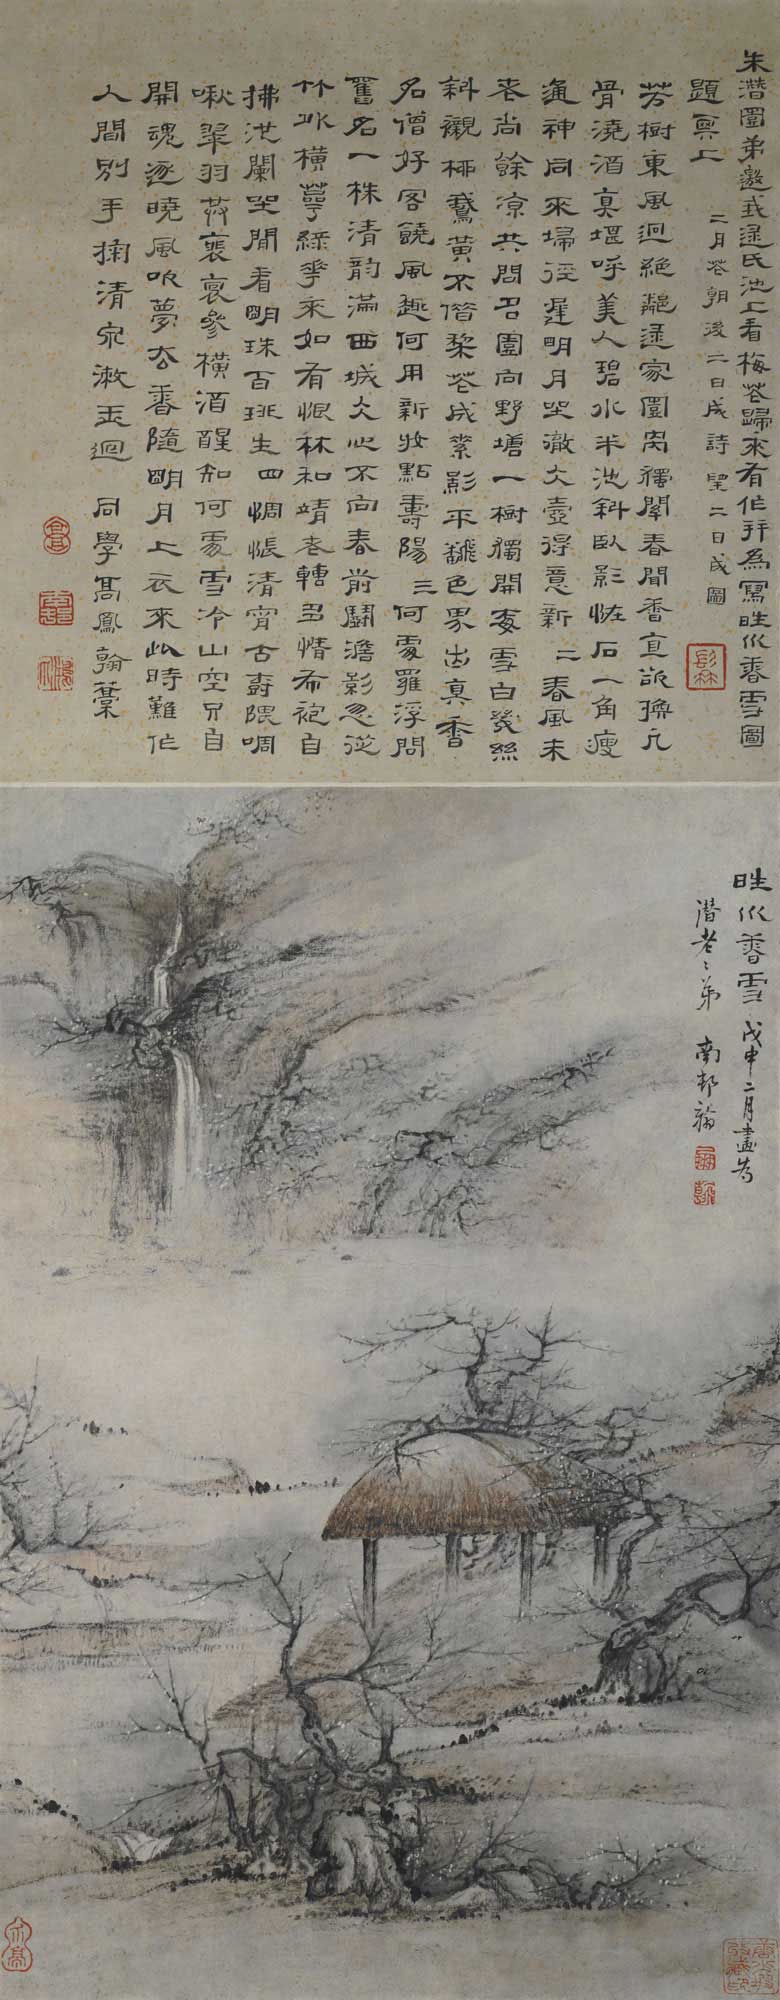 朱潛園弟邀我逯氏池上看梅花歸來有作并為寫香雪圖
題其上 二月花朝後二日成詩望二日成圖
芳樹東風迥絕塵逯家園獨擎春聞香直欲換凡
骨澆酒真堪呼美人碧水半池斜臥影怪石一角瘦
通神同來埽徑遲明月坐澈冰壺得意新 二 春風未
老尚餘涼共問名園向野塘一樹獨開如雪白幾絲
斜襯柳鵝黃不偕黎花成素影平翻色界出真香
名僧好客饒風趣何用新妝點壽陽 三 何處羅浮問
舊名一株清韵滿西城冰心不向春前鬬澹影忽從
竹外橫萼綠華來如有恨林和靖老轉多情布袍自
拂池闌坐閒看明珠百琲生 四 惆悵清宵古壽隈啁
啾翠羽共裵褱參橫酒醒知何處雪冷山空只自
開魂逐曉風吹夢去香隨明月上衣來此時難作
人間別手掬清泉漱玉迴 同學高鳳翰稿
香雪 戊申二月畫為
潛老老弟 南邨翰